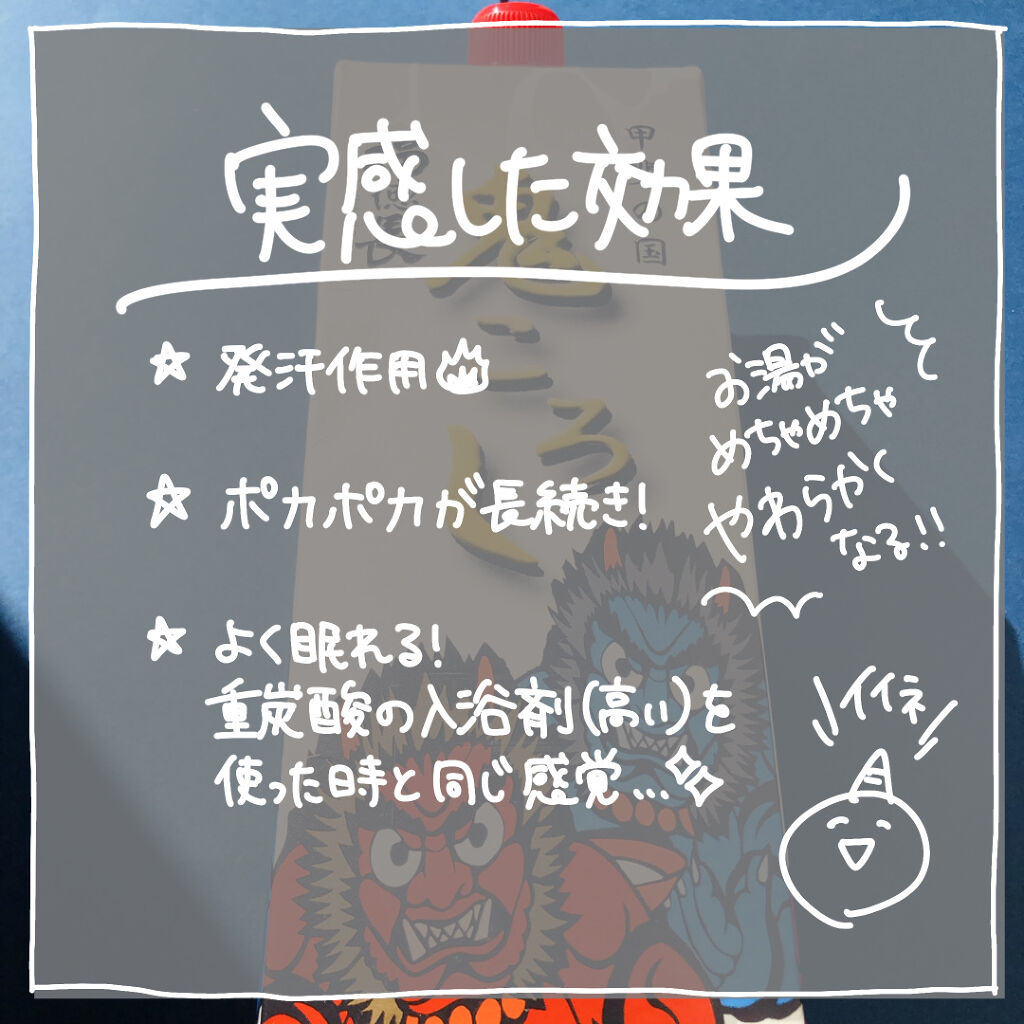 実感した効果
☆ 発汗作用
☆ ポカポカが長続き!
☆ よく眠れる!
重炭酸の入浴剤(高い)を
使った時と同じ感覚…
お湯が
めちゃめちゃ
やわらかく
なる!!
イイネ
甲斐の国
鬼ころし